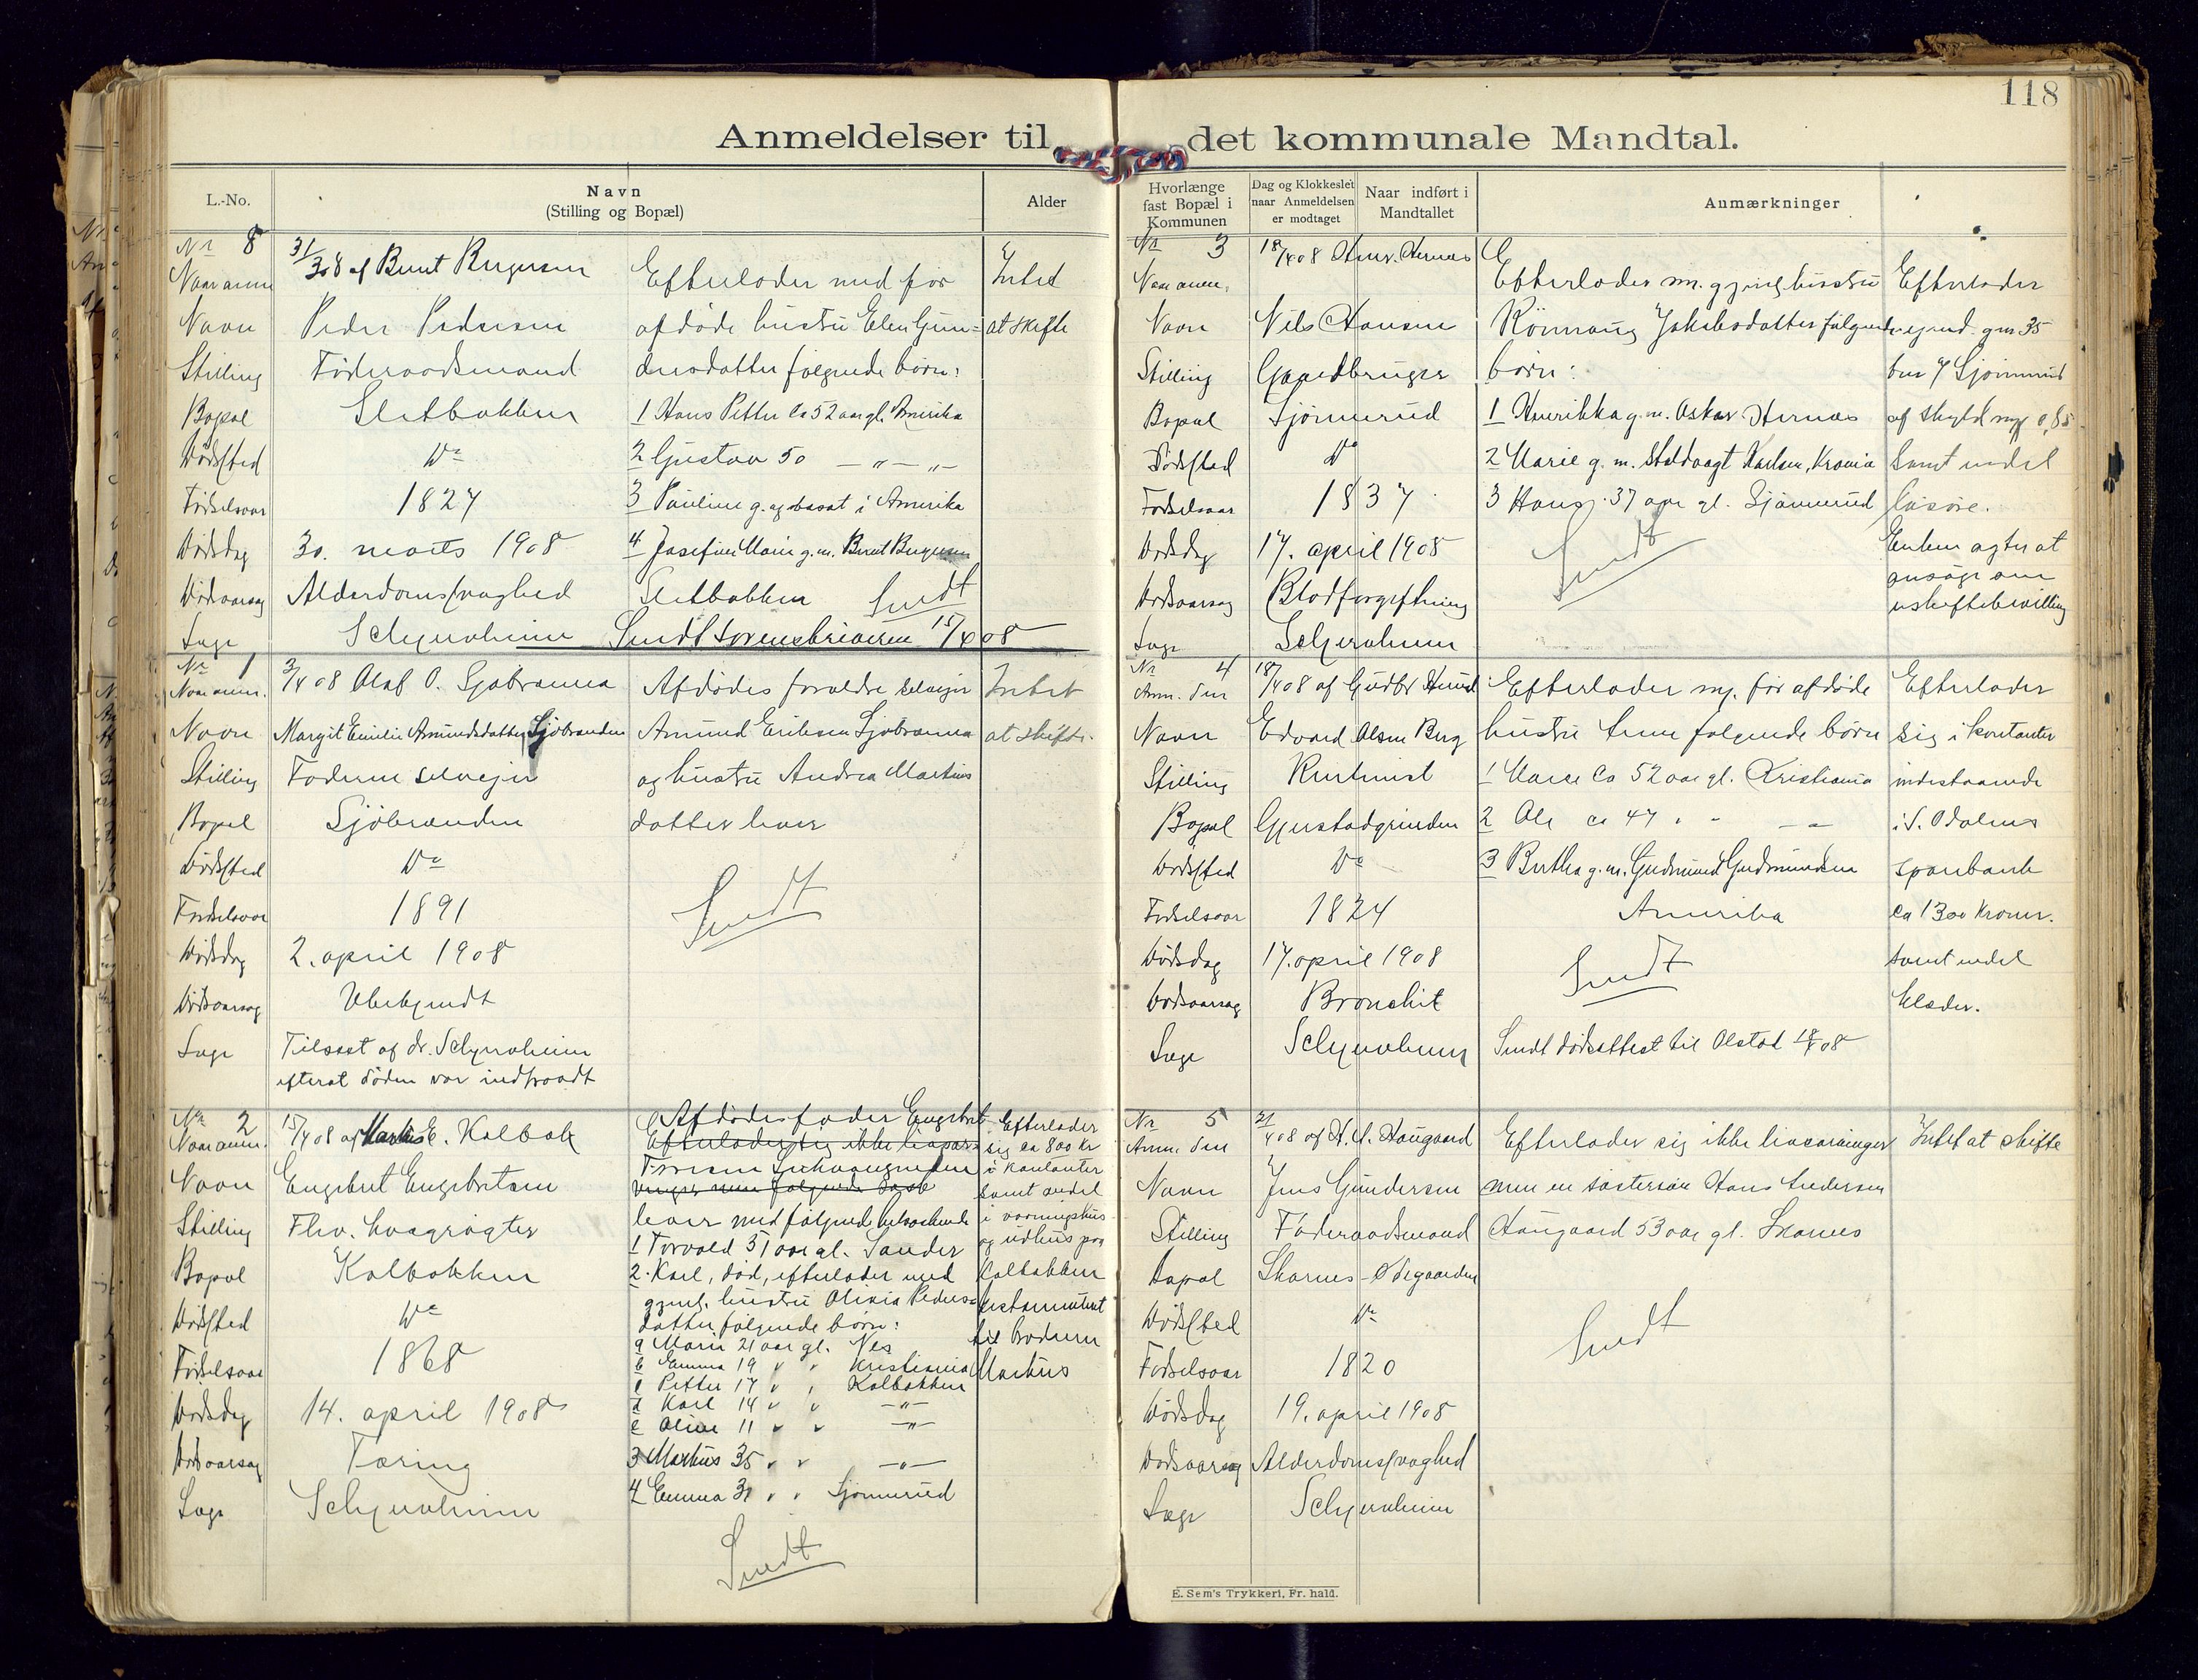 118
Anmeldelser til det kommunale Mandtal.
L.-No.
Navn
(Stilling og Bopæl)
Alder
Hvorlænge
fast Bopæl i
Kommunen
Dag og Klokkeslet
naar Anmeldelsen
er modtaget
Naar indført i
Mandtallet
Anmærkninger
No 8
Naar anm
31/3 08 af Bernt Bergersen
Navn Peder Pedersen
Stilling Føderaadsmand
Bopæl Sletbakken
Dødssted Do
Fødselsaar 1827
Dødsdag 30. marts 1908
Dødsaarsag Alderdomssvaghed
Læge Schjervheim
Efterlader med før
afdøde hustru Elen Gun=
dersdatter følgende børn:
1 Hans Petter ca 52 aar gl. Amerika
2 Gustav 50 — " — " —
3 Pauline g. og bosat i Amerika
4 Josefine Marie g. m. Bernt Bergersen
Sletbakken Sendt
Sendt Sorenskriveren 15/4 08
Intet
at skifte
No 1
Naar anm. 3/4 08 Olaf O. Sjøbranna
Navn Margit Emilie Amundsdatter Sjøbranden
Stilling Faderen selveier
Bopæl Sjøbranden
Dødssted Do
Fødselsaar 1891
Dødsdag 2. april 1908
Dødsaarsag Ubekjendt
Læge Tilseet af dr. Schjervheim
efterat døden var indtraadt
Afdødes forældre selveier
Amund Eriksen Sjøbranna
og hustru Andrea Martins
datter lever
Sendt
Intet
at skifte.
No 2
Naar anm. 15/4 08 af Martius E. Kalbak
Navn Engebret Engebretsen
Stilling Fhv. Kvægrøgter
Bopæl Kalbakken
Dødssted Do
Fødselsaar 1868
Dødsdag 14. april 1908
Dødsaarsag Tæring
Læge Schjervheim
Afdødes fader Engebret
Efterlader sig ikke livsar=
vinger men følgende
lever med følgende
1 Torvald 51 aar gl. Sander
2. Karl, død, efterlader med
gjenl. hustru Olivia Peders=
datter følgende børn:
a Marie 21 aar gl. Nes
b Emma 19 " " Kristiania
c Petter 17 " " Kalbakken
d Karl 14 " " —"—
e Oline 11 " " —"—
3 Martius 35 " " —"—
4 Emma 31 " " Sjønnerud
Sendt
Efterlader
sig ca 800 kr
i kontanter
samt andel
i vaaningshus
og udhus paa
Kalbakken
testamenteret
til broderen
Martius
No 3
Naar anm. 18/4 08 Hernæs
Navn Nils Hansen
Stilling Gaardbruger
Bopæl Sjønnerud
Dødssted Do
Fødselsaar 1837
Dødsdag 17. april 1908
Dødsaarsag Blodforgiftning
Læge Schjervheim
Efterlader m. gjenl. hustru
Rønnaug Jakobsdatter følgende
børn:
1 Henrikka g. m. Oskar Hernæs
2 Marie g. m. Staldvagt Karlsen, Krania
3 Hans 37 aar gl. Sjønnerud
Sendt
Efterlader
eiend. gnr 35
bnr 7 Sjønnerud
af skyld mrk 0,85
samt endel
løsøre.
Enken agter at
ansøge om
uskiftebevilling
No 4
Anm. den 18/4 08 af Gudbr Strand
Navn Edvard Olsen Berg
Stilling Rentenist
Bopæl Gjerstadgrinden
Dødssted Do
Fødselsaar 1824
Dødsdag 17. april 1908
Dødsaarsag Bronchit
Læge Schjervheim
Efterlader m. før afdøde
hustru følgende børn
1 Maren ca 52 aar gl. Kristiania
2 Ole ca 47 " " —"—
3 Berthe g. m. Gudmund Gudmundsen
Amerika
Sendt
Sendt dødsattest til Olstad 18/4 08
Efterlader
sig i kontanter
indestaaende
i S. Odalens
sparebank
ca 1300 kroner.
samt endel
klæder.
No 5
Anm. den 21/4 08 af H. A. Haugaard
Navn Jens Gundersen
Stilling Føderaadsmand
Bopæl Skarnes-Ødegaarden
Dødssted Do
Fødselsaar 1820
Dødsdag 19. april 1908
Dødsaarsag Alderdomssvaghed
Læge Schjervheim
Efterlader sig ikke livsarvinger
men en søstersøn Hans Andersen
Haugaard 53 aar gl. Skarnes
Sendt
Intet at skifte
E. Sem's Trykkeri, Fr. hald.